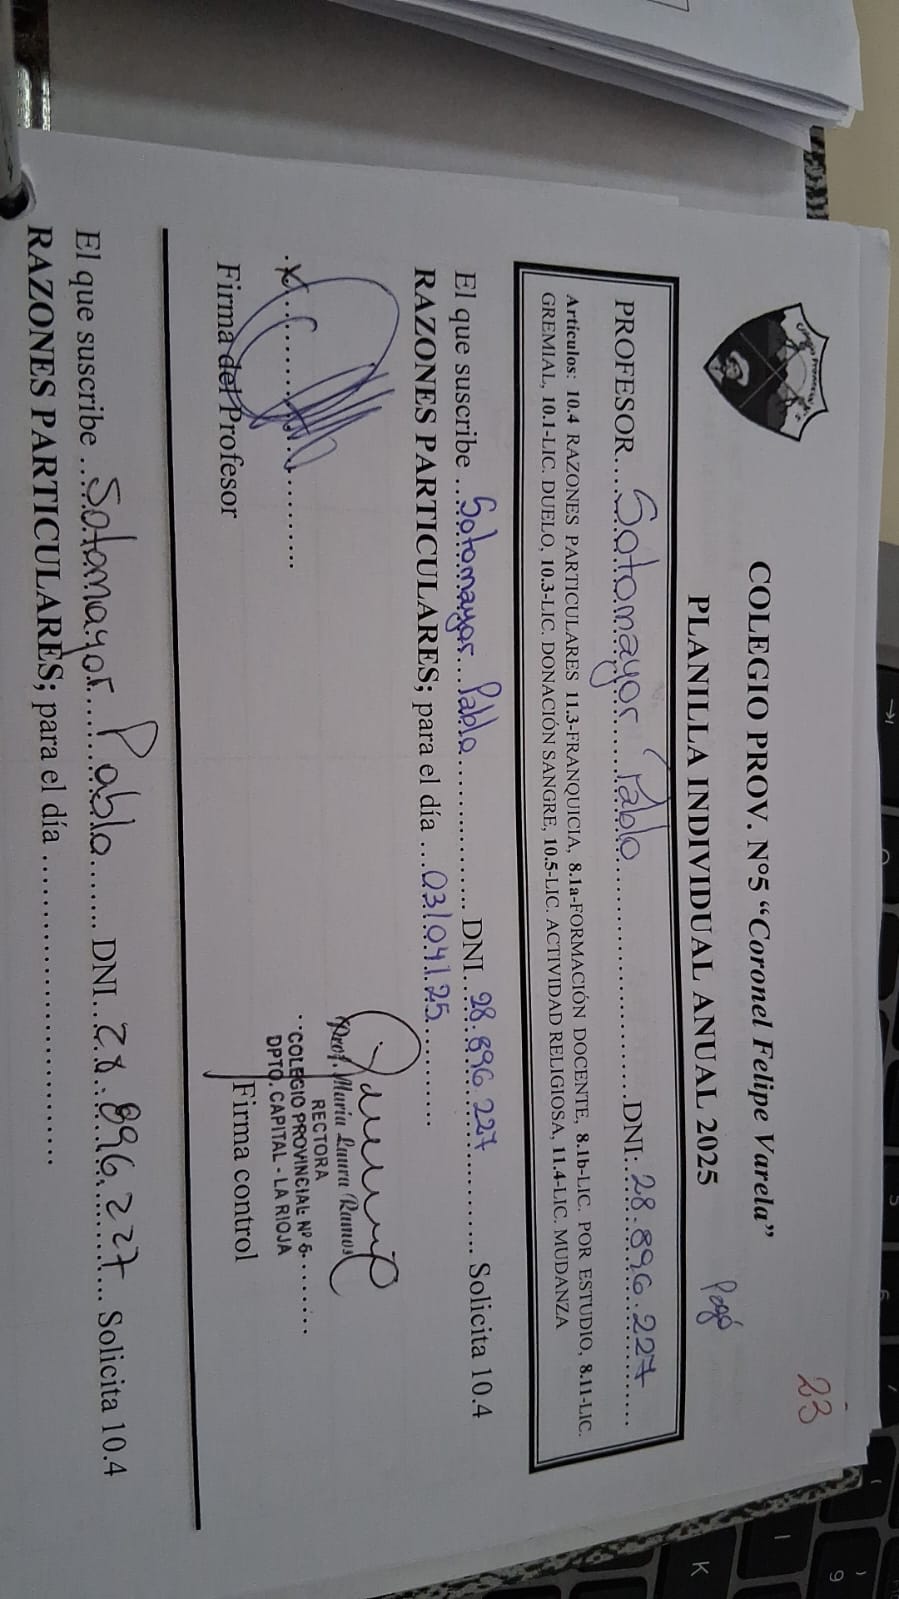 23
COLEGIO PROV. N°5 “Coronel Felipe Varela”
Pagó
PLANILLA INDIVIDUAL ANUAL 2025
PROFESOR....Sotomayor Pablo....DNI...28.896.227....
Artículos: 10.4 RAZONES PARTICULARES 11.3-FRANQUICIA, 8.1a-FORMACIÓN DOCENTE, 8.1b-LIC. POR ESTUDIO, 8.11-LIC.
GREMIAL, 10.1-LIC. DUELO, 10.3-LIC. DONACIÓN SANGRE, 10.5-LIC. ACTIVIDAD RELIGIOSA, 11.4-LIC. MUDANZA
El que suscribe ...Sotomayor Pablo.... DNI...28.896.227.... Solicita 10.4
RAZONES PARTICULARES; para el día ...03/04/25....
Prof. María Laura Ramos
RECTORA
COLEGIO PROVINCIAL Nº 5
DPTO. CAPITAL - LA RIOJA
Firma del Profesor
Firma control
El que suscribe ...Sotomayor Pablo.... DNI...28.896.227... Solicita 10.4
RAZONES PARTICULARES; para el día ....................